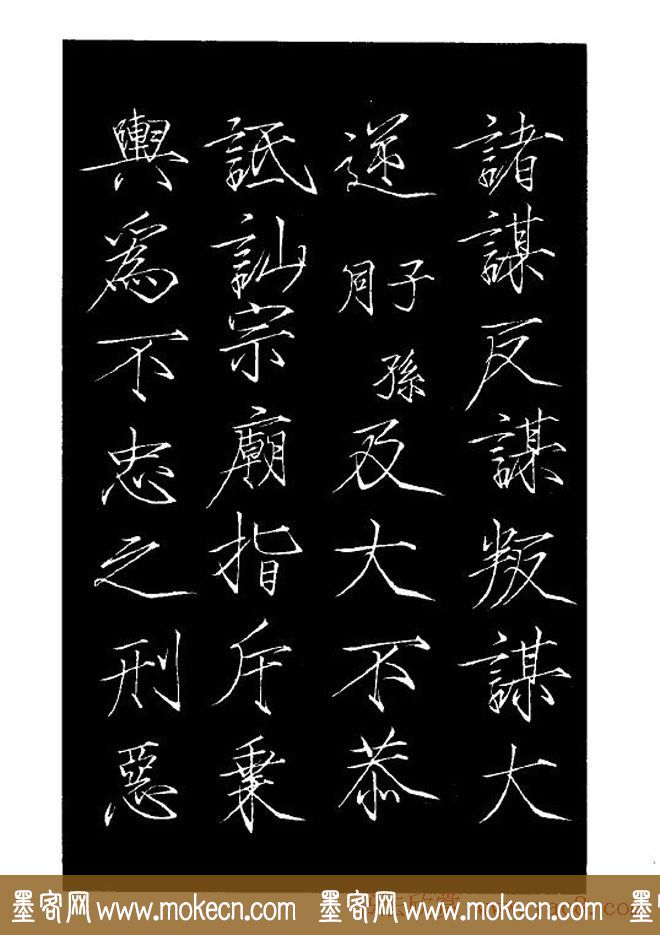 諸謀反謀叛謀大
逆子孫同及大不恭
詆訕宗廟指斥乗
輿爲不忠之刑惡
墨客网 www.mokecn.com 墨客网 www.mokecn.com 墨